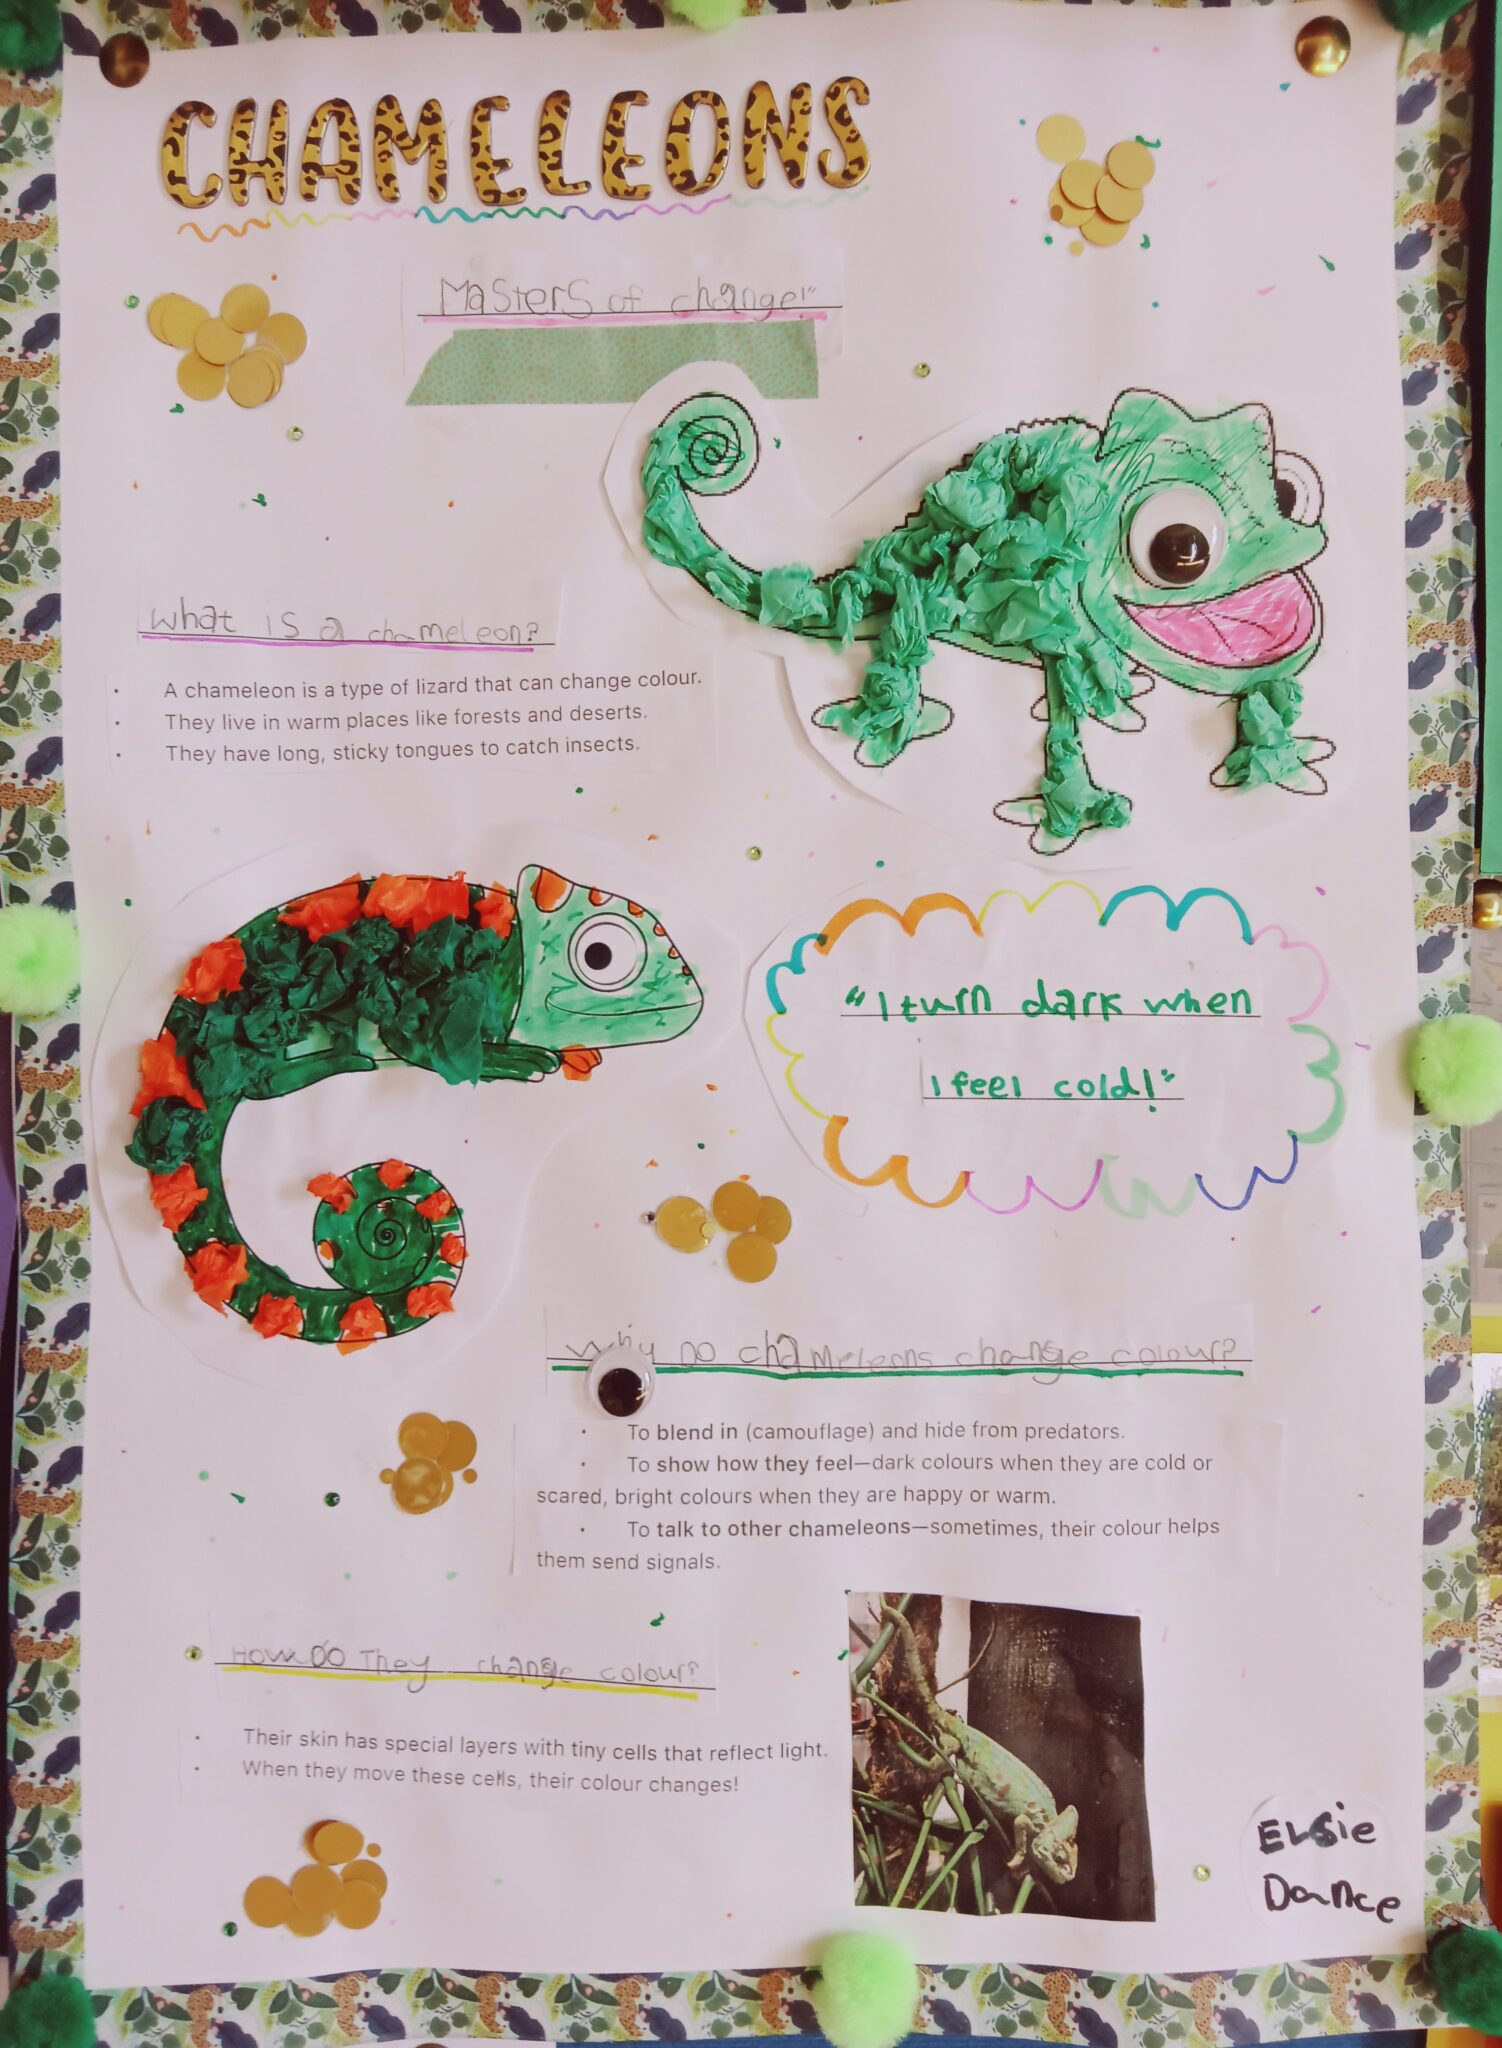 CHAMELEONS
Masters of change!"
What is a chameleon?
· A chameleon is a type of lizard that can change colour.
· They live in warm places like forests and deserts.
· They have long, sticky tongues to catch insects.
"I turn dark when
I feel cold!"
Why Do chameleons change colour?
· To blend in (camouflage) and hide from predators.
· To show how they feel—dark colours when they are cold or
scared, bright colours when they are happy or warm.
· To talk to other chameleons—sometimes, their colour helps
them send signals.
How Do They change colour?
· Their skin has special layers with tiny cells that reflect light.
· When they move these cells, their colour changes!
ELSie
Dance